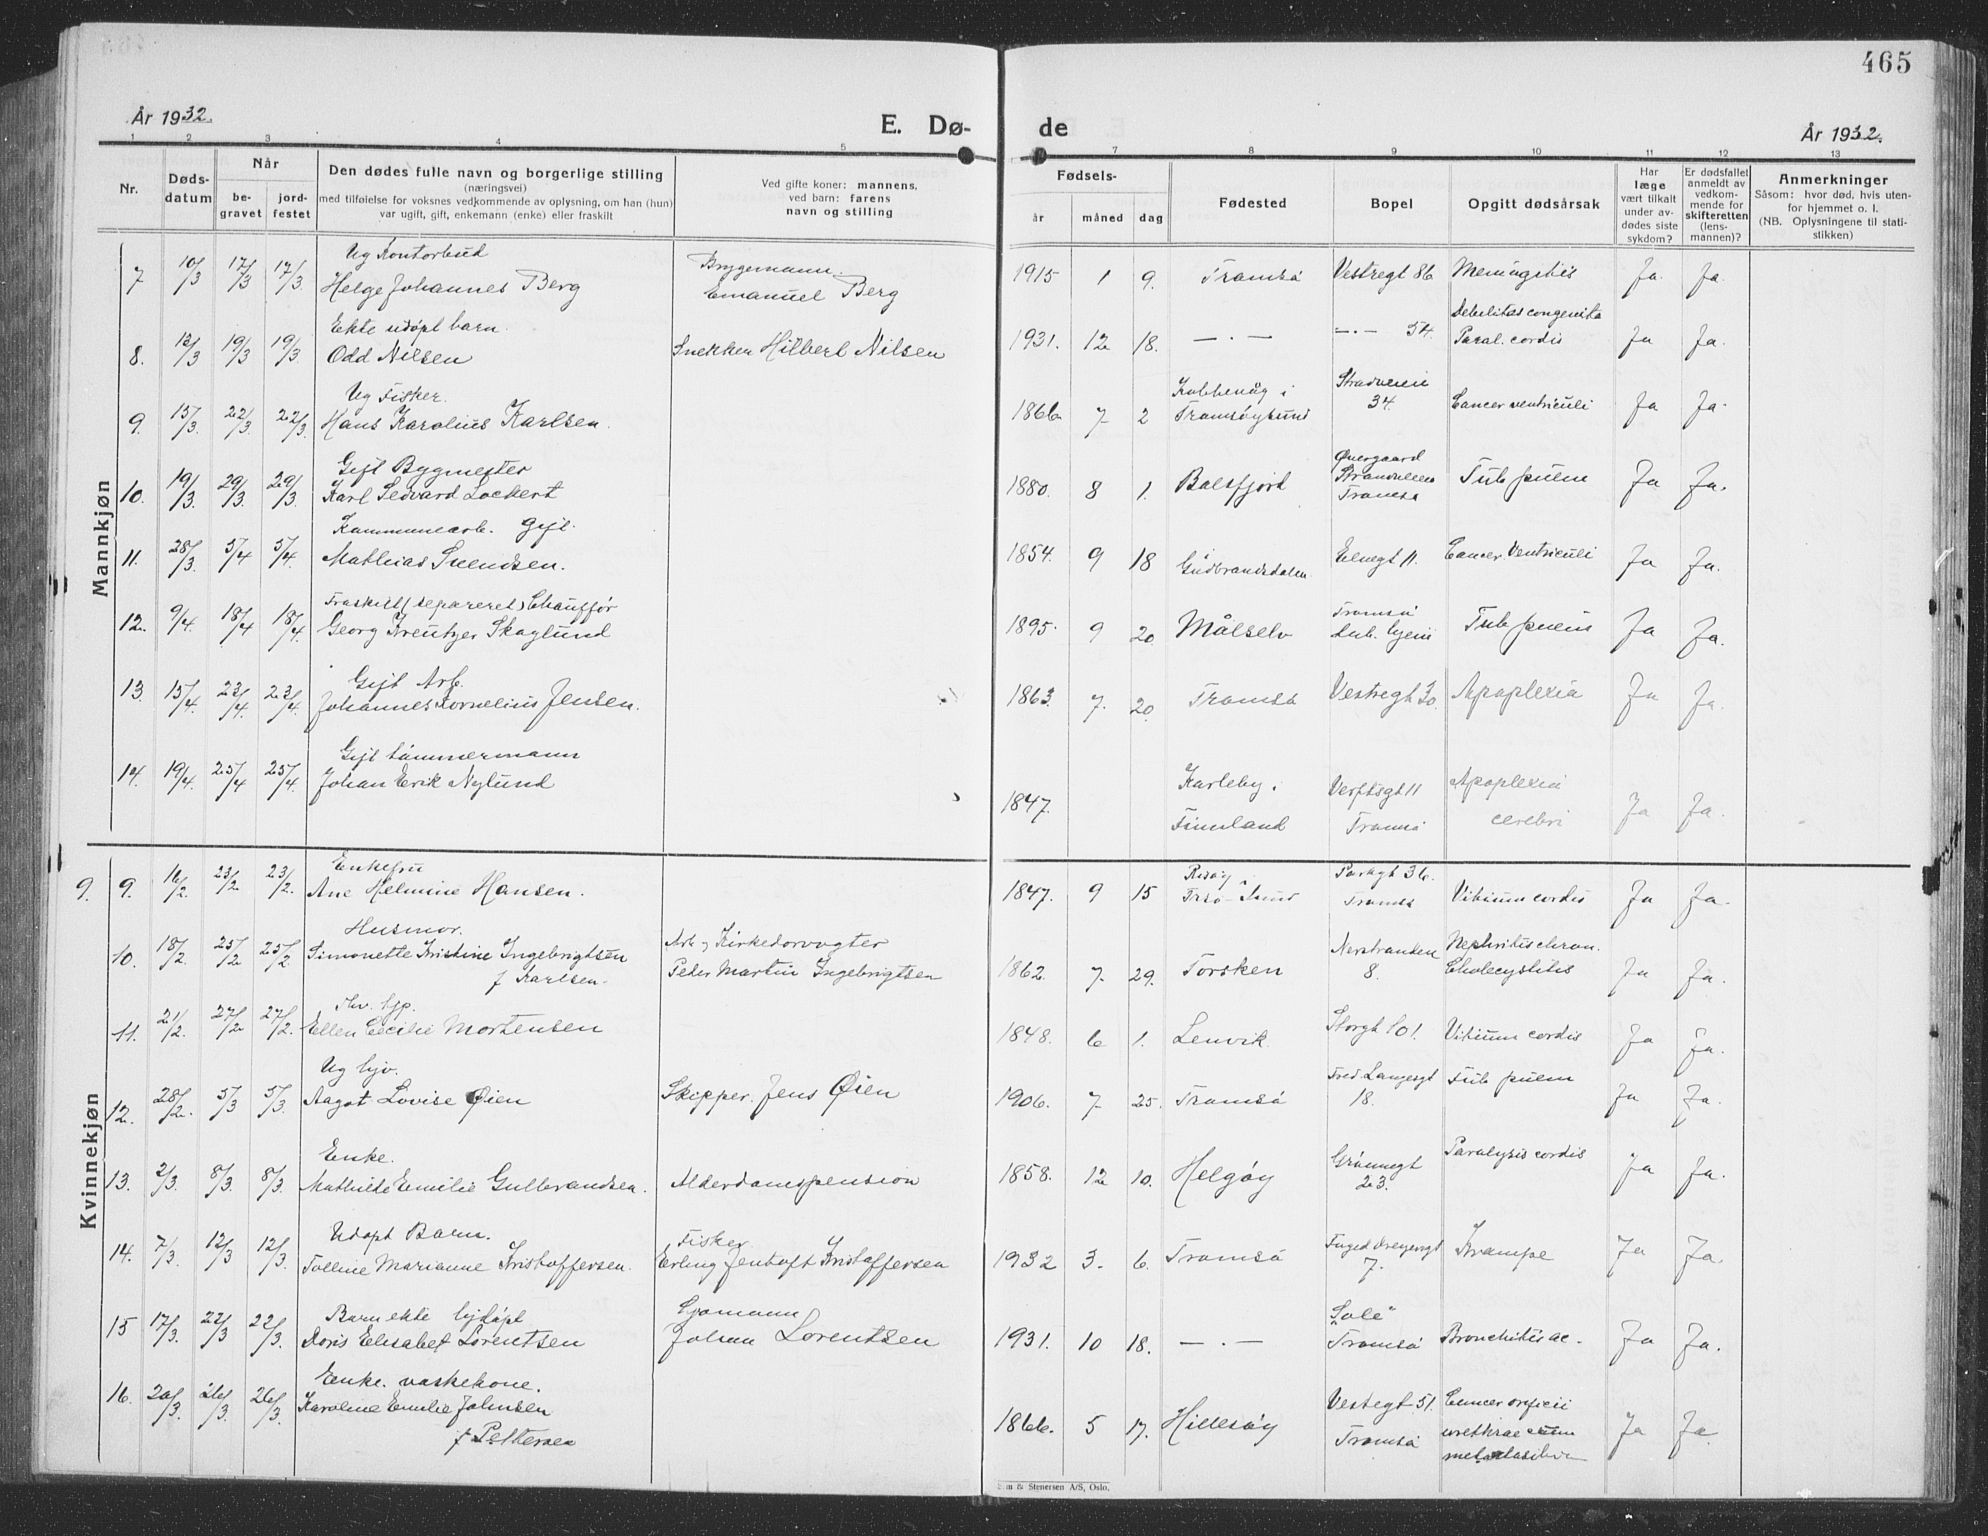 465
År 1932.
E. Dø-
de
År 1932.
1 2 3 4 5 7 8 9 10 11 12 13
Nr.
Døds-
datum
Når
be-
gravet
jord-
festet
Den dødes fulle navn og borgerlige stilling
(næringsvei)
med tilføielse for voksnes vedkommende av oplysning, om han (hun)
var ugift, gift, enkemann (enke) eller fraskilt
Ved gifte koner: mannens,
ved barn: farens
navn og stilling
Fødsels-
år måned dag
Fødested
Bopel
Opgitt dødsårsak
Har
læge
vært tilkalt
under av-
dødes siste
sykdom?
Er dødsfallet
anmeldt av
vedkom-
mende for
skifteretten
(lens-
mannen)?
Anmerkninger
Såsom: hvor død, hvis uten-
for hjemmet o. l.
(NB. Oplysningene til stati-
stikken)
Mannkjøn
Ug Kontorbud Brygemann.
7 10/3 17/3 17/3 Helge Johannes Berg Emanuel Berg 1915 1 9. Tromsø Vestregt 86 Meningitis Ja. Ja.
Ekte udøpt barn. Debilitas congenita
8. 12/3 19/3 19/3 Odd Nilsen Snekker Hilbert Nilsen 1931. 12 18. — . — — . — 54. Paral. cordis Ja Ja.
Ug Fisker. Kobbevåg i Strandveien
9. 15/3. 22/3. 22/3. Hans Karolius Karlsen. 1866 7 2 Tromsøysund 34. Cancer ventriculi Ja Ja.
Gift Bygmester Øvergaard
10. 19/3. 29/3. 29/3. Karl Sedvard Lockert 1880. 8 1. Balsfjord Strandveien Tromsø Tub pulm Ja Ja.
Kommunearb. Gift.
11. 28/3. 5/4 5/4. Mathias Svendsen. 1854. 9 18 Gudbrandsdalen Elvegt 11. Cancer Ventriculi Ja Ja.
Fraskilt (separeret) Chauffør Tromsø
12. 9/4. 18/4 18/4. Georg Kreutzer Skaglund 1895. 9 20. Målselv tub. hjem Tub pulm Ja Ja.
Gift Arb.
13. 15/4. 23/4. 23/4. Johannes Kornelius Jensen. 1863. 7. 20. Tromsø Vestregt 30. Apoplexia Ja Ja.
Gift tømmermann
14. 19/4. 25/4 25/4. Johan Erik Nylund 1847. Karleby i Finnland Verftsgt 11 Tromsø Apoplexia cerebri Ja Ja.
Kvinnekjøn
Enkefru Risøy Parkgt 36.
9. 9. 16/2. 23/2 23/2. Ane Helmine Hansen. 1847. 9 15 Trsø-Sund Tromsø Vitium cordis Ja Ja.
Husmor. Arb og Kirkedorvogter Nerstranden Nephritis chron.
10. 18/2. 25/2 25/2 Simonette Kristine Ingebrigtsen Peder Martin Ingebrigtsen 1862. 7. 29. Torsken 8. Cholecystitis Ja Ja.
f Karlsen.
11. 21/2. 27/2 27/2. Ellen Cecilie Mortensen 1848. 6 1. Lenvik Storgt 101. Vitium cordis Ja Ja.
Ug hjv. Fred Langesgt
12. 28/2. 5/3 5/3. Aagot Lovise Øien Skipper. Jens Øien 1906. 7 25. Tromsø 18. Tub pulm Ja Ja.
Enke. Grønnegt
13. 2/3. 8/3 8/3. Mathilde Emilie Gulbrandsen. Alderdomspension 1858. 12 10. Helgøy 23. Paralysis cordis Ja Ja.
Udøpt Barn. Fisker
14. 7/3. 12/3 12/3. Tolline Marianne Kristoffersen. Erling Jentoft Kristoffersen 1932 3. 6. Tromsø 7. Krampe Ja Ja.
Barn ekte hjdøpt Sjømann
15 17/3. 22/3 22/3. Doris Elisabet Lorentsen Johan Lorentsen 1931. 10 18. — . — Tromsø Bronchitis ac. Ja Ja.
Enke. vaskekone. Vestregt 51. Cancer orificii
16. 20/3. 26/3. 26/3. Karoline Emilie Johnsen 1866. 5 17. Hillesøy Tromsø urethrae cum Ja Ja
f Pettersen
Sem & Stenersen A/S, Oslo.